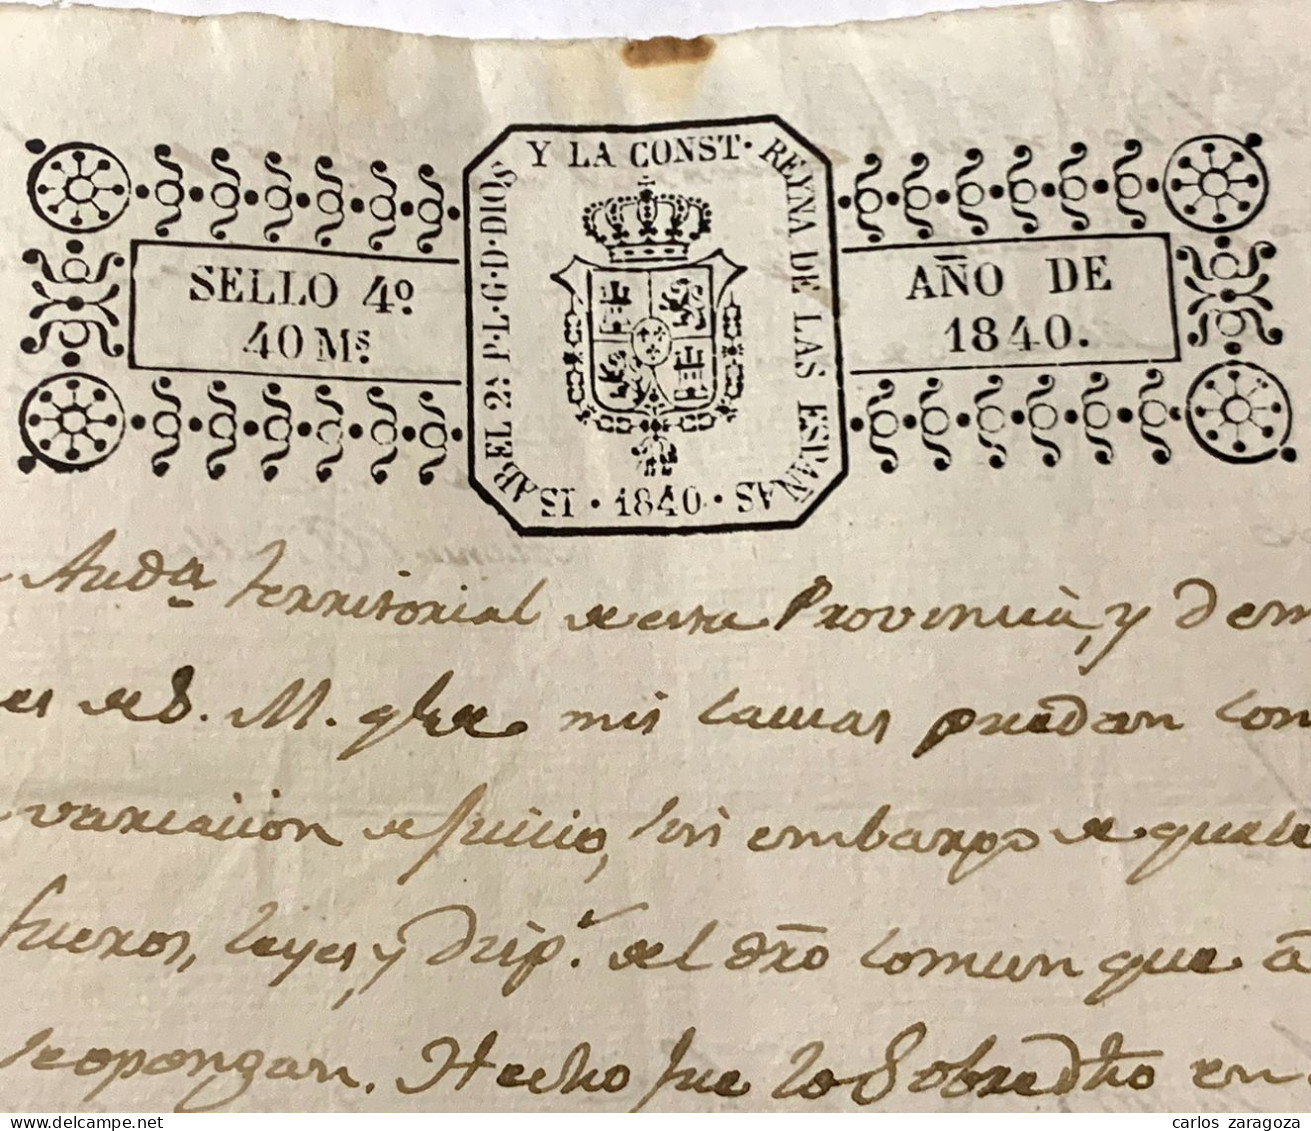 ISABEL 2ª P. L. G. D. DIOS Y LA CONST. REYNA DE LAS ESPAÑAS
· 1840 ·
SELLO 4º
40 Ms.
AÑO DE
1840.
Audª territorial de esta Provincia, y dem
es de S. M. qe de mis causas puedan con
variacion de Juicio, sin embargo de quale
fueros, leyes, y Disp.s del dro comun que á
se opongan. Hecho fue lo Sobredho en
carlos zaragoza